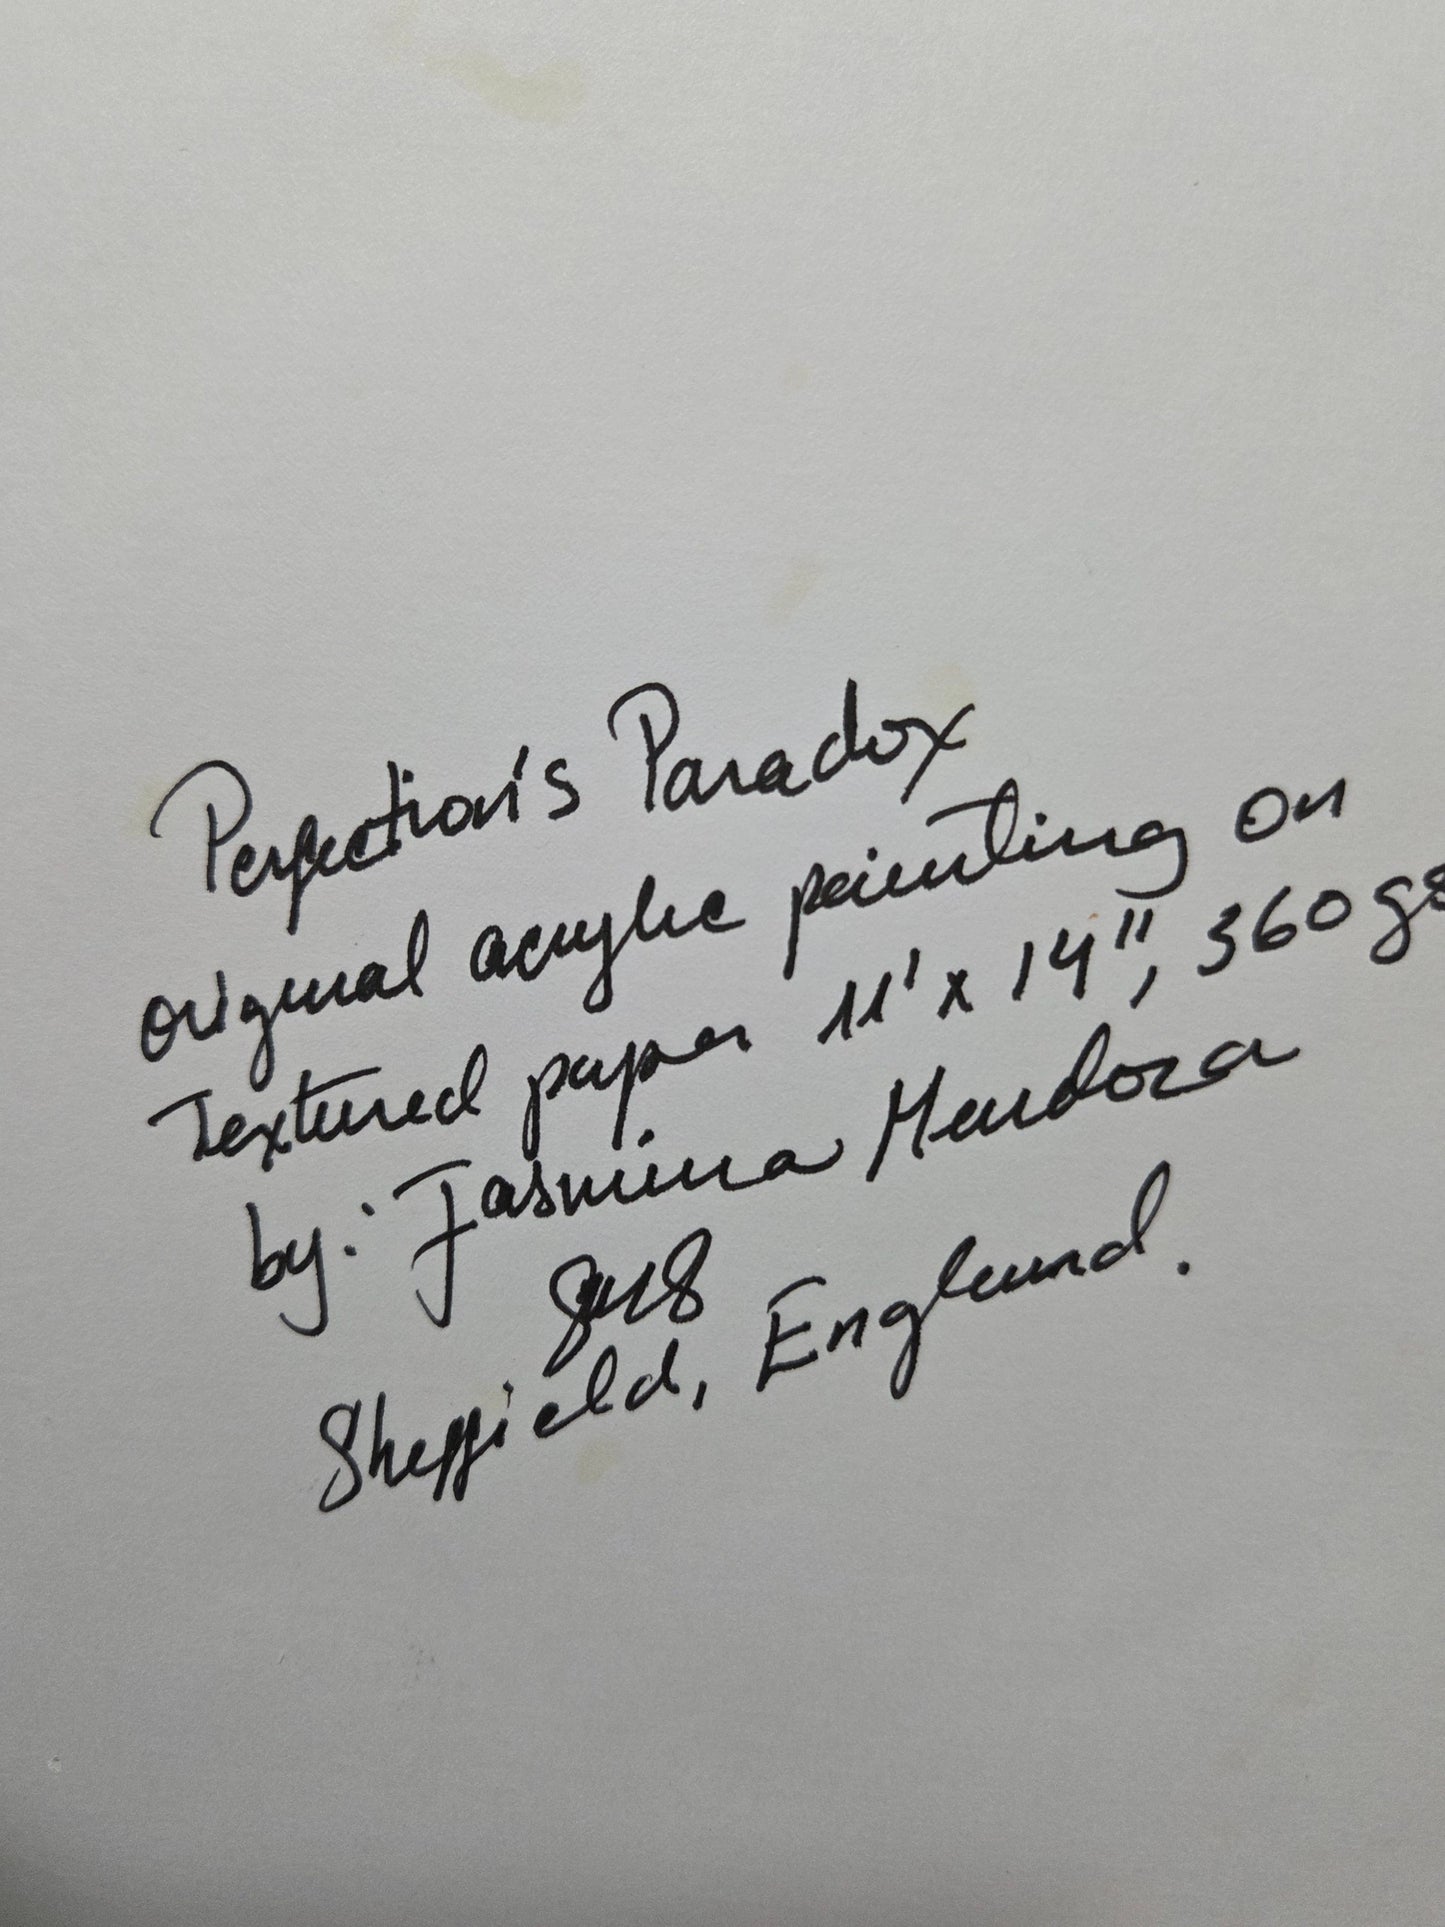 Perfection's Paradox
original acrylic painting on
Textured paper 11' x 14", 360 gs
by: Jasmina Mendoza
Sheffield, England.